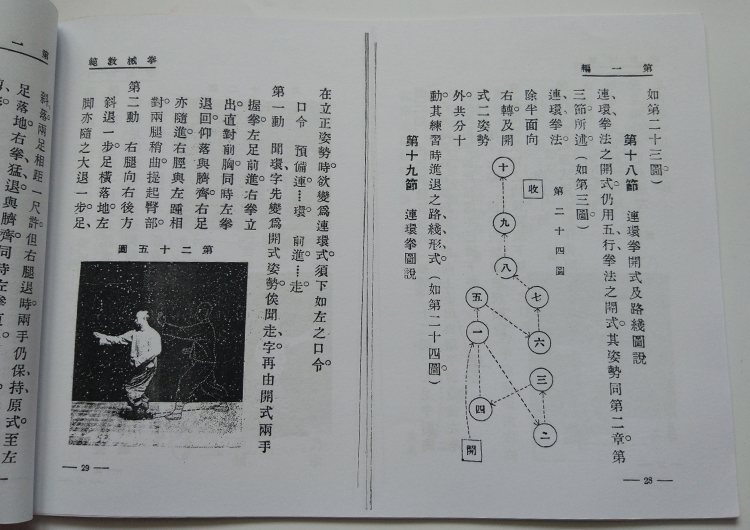 第一編
如第二十三圖)
第十八節　連環拳開式及路綫圖說
連環拳法之開式、仍用五行拳法之開式。其姿勢同第二章、第
三節所述。(如第三圖。)
連環拳法。
除半面向
右轉及開
式二姿勢
外。共分十
動。其練習時進退之路綫形式。(如第二十四圖)
第十九節　連環拳圖說
第二十四圖
收
十
九
八
七
六
五
一
四
三
二
開
28
拳械教範
在立正姿勢時。欲變爲連環式。須下如左之口令。
口令　預備連…環　前進…走
第一動　聞環字、先變爲開式姿勢。俟聞走字、再由開式兩手
握拳。左足前進。右拳立
出。直對前胸。同時左拳
退回仰落與臍齊。右足
亦隨進。右脛與左踵相
對。兩腿稍曲。提起臀部。
第二動　右腿向右後方
斜退一步。足橫落地。左
脚亦隨之大退一步。足、
第二十五圖
29
第一
斜落。兩足相距一尺許。但右腿退時。兩手仍保持原式。至左
足落地。右拳猛退與臍齊。同時左拳直